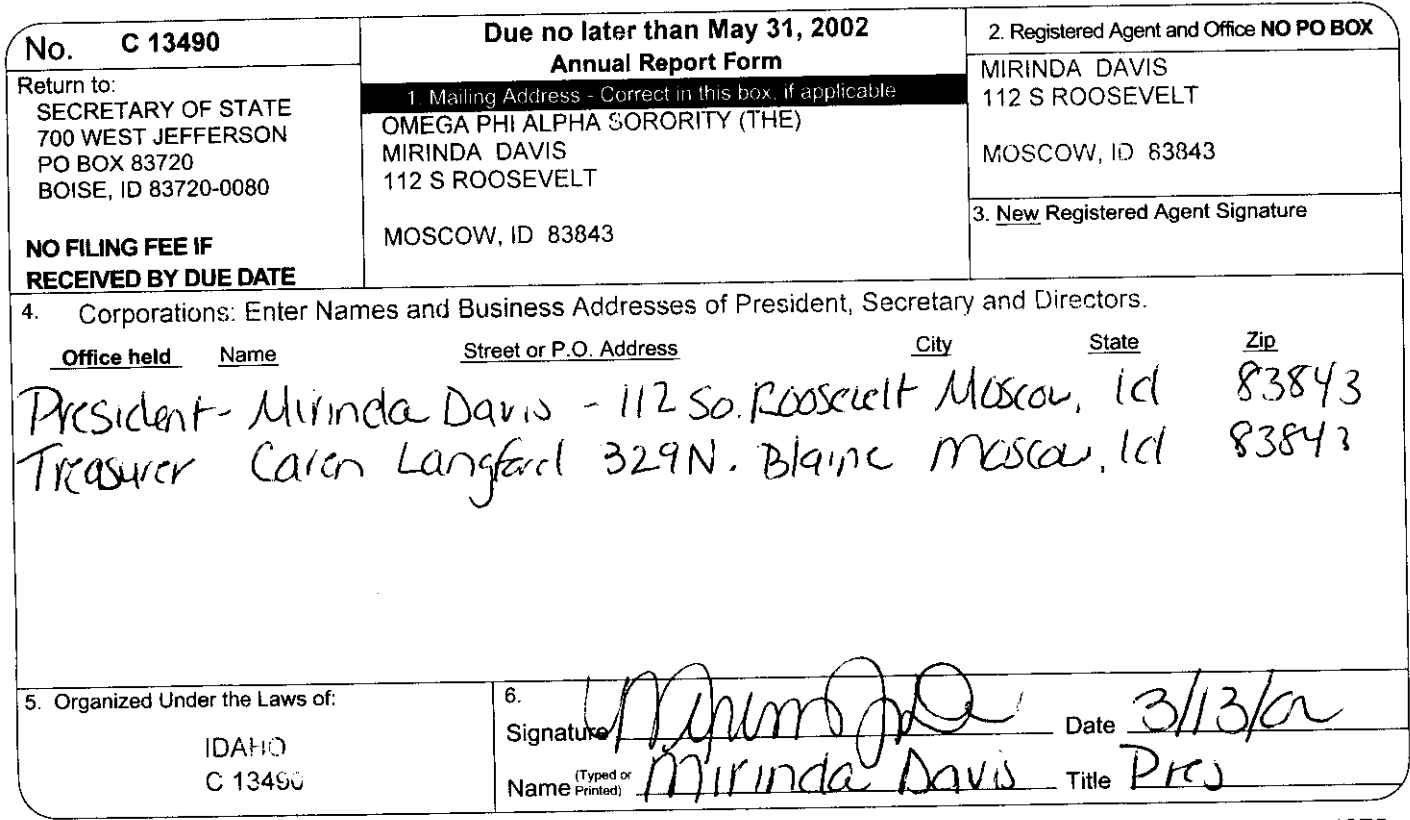 No. C 13490
Return to:
SECRETARY OF STATE
700 WEST JEFFERSON
PO BOX 83720
BOISE, ID 83720-0080
NO FILING FEE IF
RECEIVED BY DUE DATE
Due no later than May 31, 2002
Annual Report Form
1. Mailing Address - Correct in this box, if applicable
OMEGA PHI ALPHA SORORITY (THE)
MIRINDA DAVIS
112 S ROOSEVELT
MOSCOW, ID 83843
2. Registered Agent and Office NO PO BOX
MIRINDA DAVIS
112 S ROOSEVELT
MOSCOW, ID 83843
3. New Registered Agent Signature
4. Corporations: Enter Names and Business Addresses of President, Secretary and Directors.
Office held Name Street or P.O. Address City State Zip
President - Mirinda Davis - 112 So. Roosevelt Moscow, Id 83843
Treasurer Caren Langford 329 N. Blaine Moscow, Id 83843
5. Organized Under the Laws of:
IDAHO
C 13490
6.
Signature Date 3/13/02
Name (Typed or Printed) Mirinda Davis Title Pres